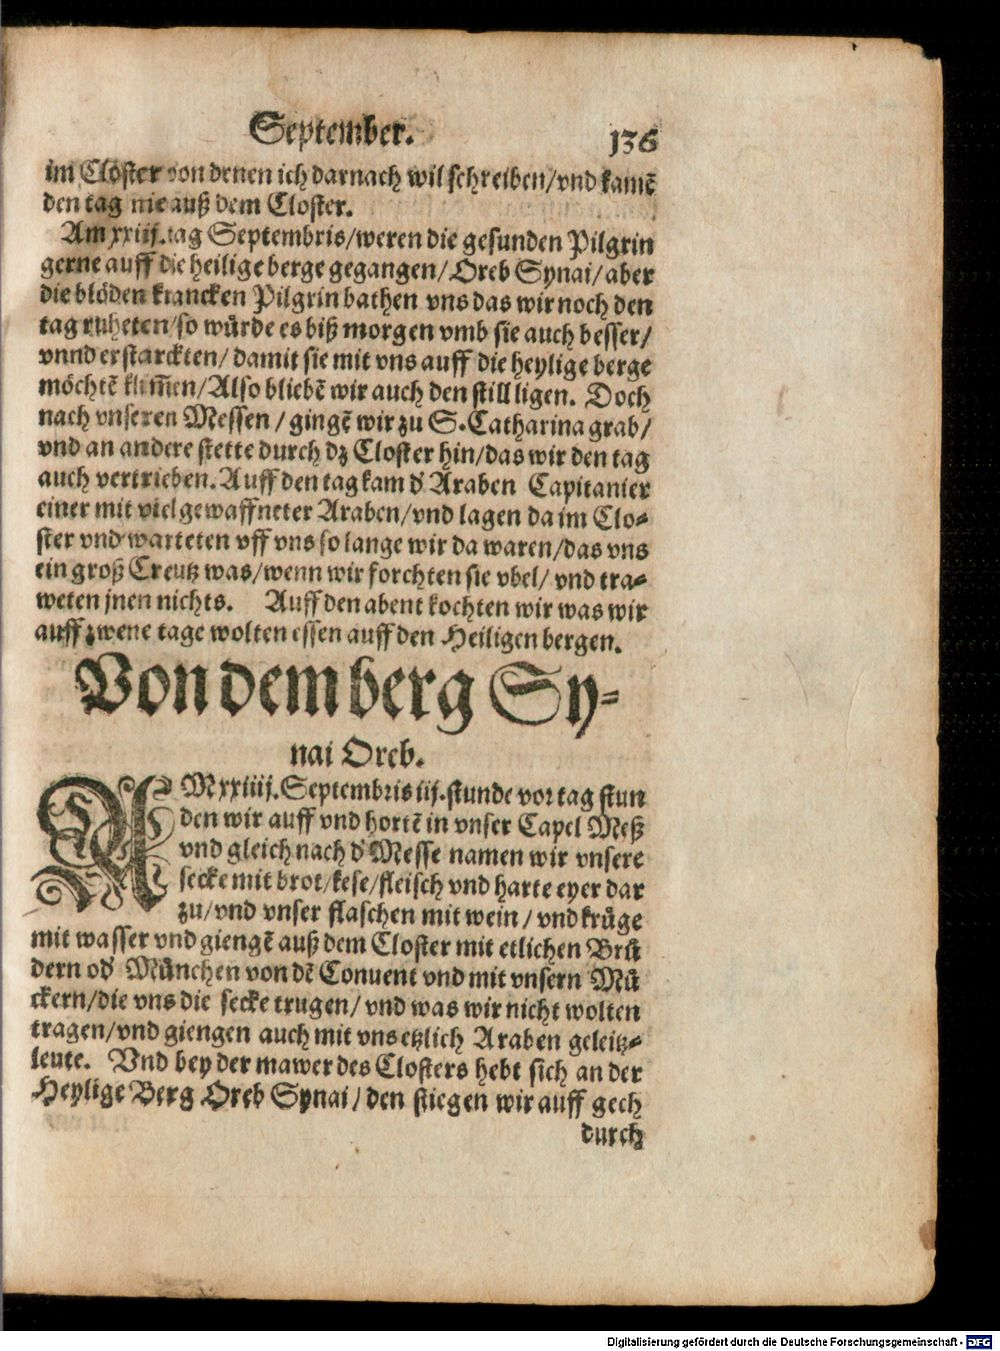 September. 136
im Closter von denen ich darnach wil schreiben/vnd kamẽ
den tag nie auß dem Closter.
Am xxiij. tag Septembris/weren die gesunden Pilgrin
gerne auff die heilige berge gegangen/Oreb Synai/aber
die blöden krancken Pilgrin bathen vns das wir noch den
tag ruheten/so würde es biß morgen vmb sie auch besser/
vnnd erstarckten/ damit sie mit vns auff die heylige berge
möchtẽ klim̃en/Also bliebẽ wir auch den still ligen. Doch
nach vnseren Messen / gingẽ wir zu S. Catharina grab/
vnd an andere stette durch dz Closter hin/das wir den tag
auch vertrieben. Auff den tag kam d' Araben Capitanier
einer mit viel gewaffneter Araben/vnd lagen da im Clo-
ster vnd warteten vff vns so lange wir da waren/das vns
ein groß Creutz was/wenn wir forchten sie vbel/ vnd tra-
weten jnen nichts. Auff den abent kochten wir was wir
auff zwene tage wolten essen auff den Heiligen bergen.
Von dem berg Sy-
nai Oreb.
AM xxiiij. Septembris iij. stunde vor tag stun
den wir auff vnd hortẽ in vnser Capel Meß
vnd gleich nach d' Messe namen wir vnsere
secke mit brot/kese/fleisch vnd harte eyer dar
zu/vnd vnser flaschen mit wein / vnd krüge
mit wasser vnd giengẽ auß dem Closter mit etlichen Brü
dern od' München von dẽ Conuent vnd mit vnsern Mü
ckern/die vns die secke trugen/ vnd was wir nicht wolten
tragen/vnd giengen auch mit vns etzlich Araben geleitz-
leute. Vnd bey der mawer des Closters hebt sich an der
Heylige Berg Oreb Synai/ den stiegen wir auff gech
durch
Digitalisierung gefördert durch die Deutsche Forschungsgemeinschaft - DFG